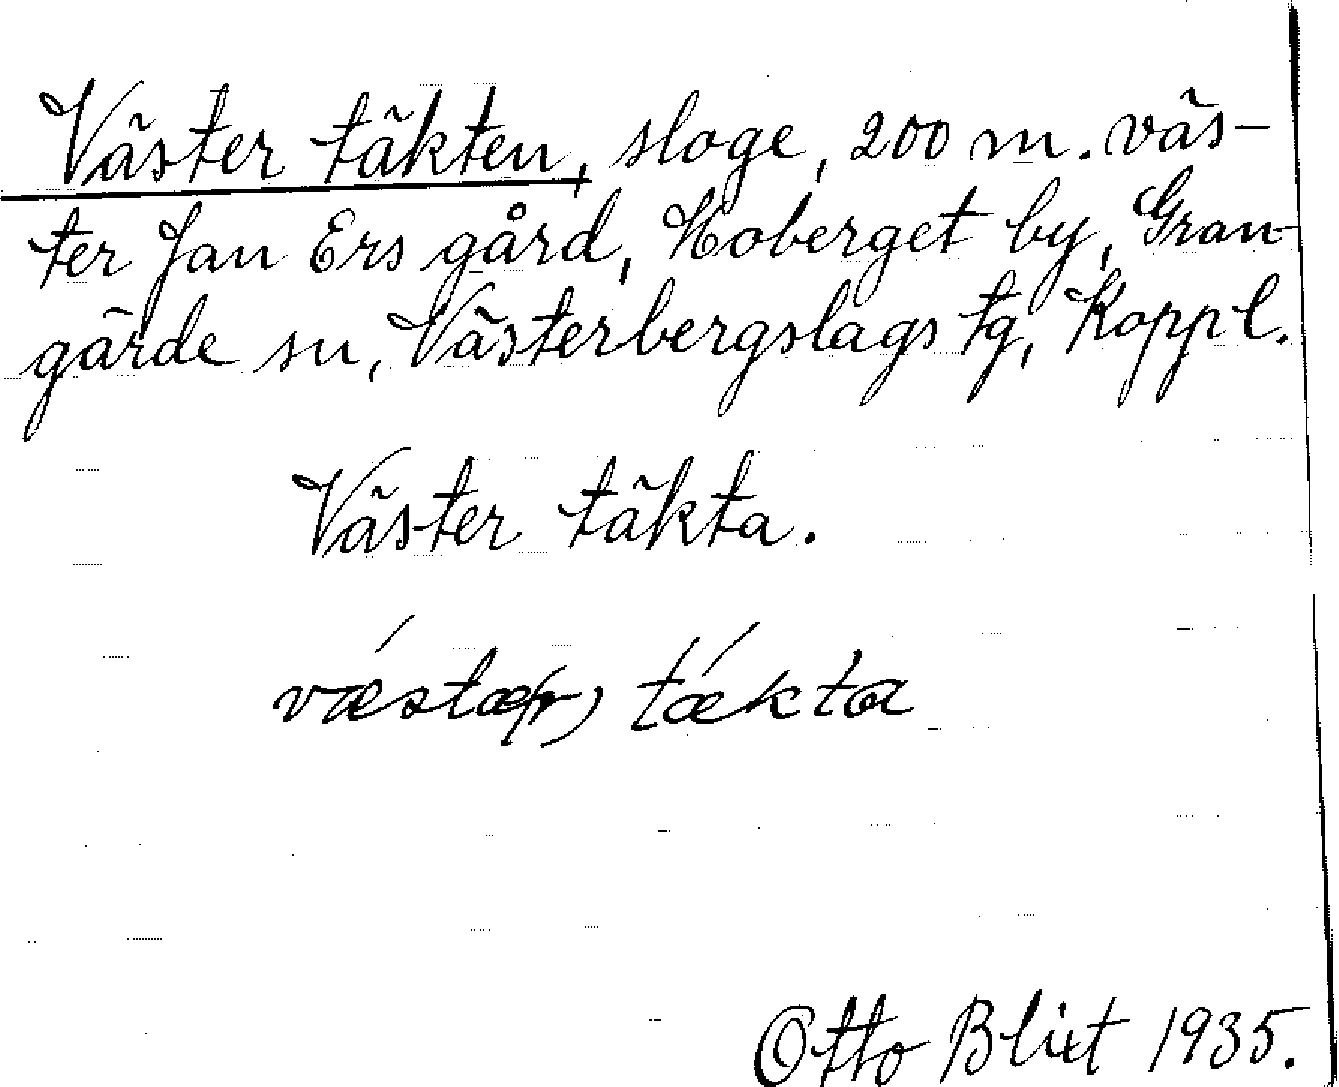 Väster täkten, sloge, 200 m. väs-
ter Jan Ers gård, Hoberget by, Gran-
gärde sn, Västerbergslags tg, Koppl.
Väster täkta.
vǽstæ(r) tǽkta
Otto Blixt 1935.